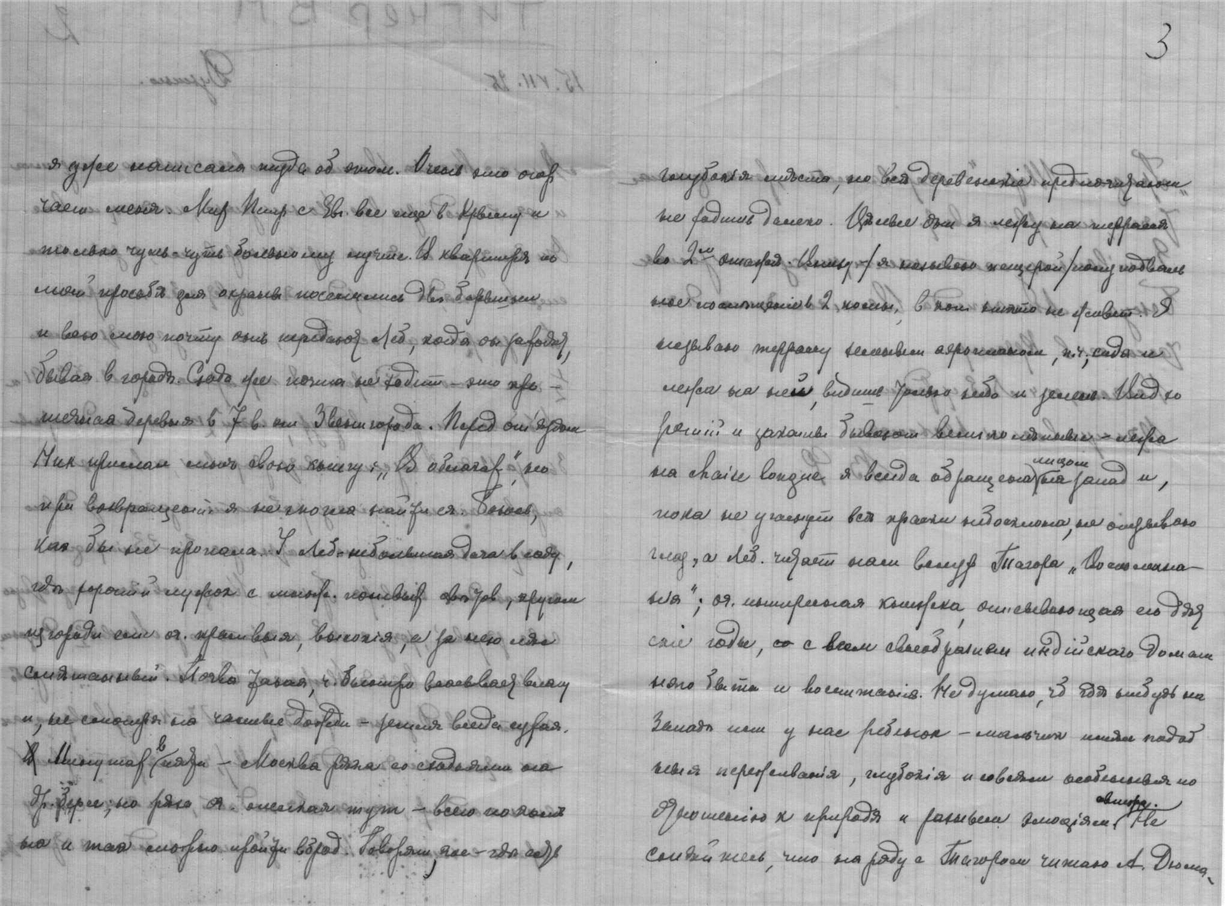 3
я уже написала туда об этом. Очень это огор
чает меня. Мар Петр с Ев. все еще в Крыму и
только чуть-чуть больному лучше. В квартире по
моей просьбе для охраны поселились две барышни
и всю мою почту они передают Леб, когда он заходит,
бывая в городе. Сюда же почта не ходит – это кре-
стьянская деревня в 7 в. от Звенигорода. Перед отъездом
Ник прислал мне свою книгу „В облаках“, но
при возвращении я не могла найти ея. Боюсь,
как бы не пропала. У Леб. небольшая дача в саду,
где хороший лужок с полевых цветов, кругом
изгороди ели оч. красивыя, высокия, а за нею лес
смешанный. Почва такая, ч. быстро всасывает влагу
и, не смотря на частые дожди – земля всегда сухая.
В минутах в пяти – Москва река со сходнями на
др. берег; но река оч. мелкая тут – всего по коле
но и так можно пройти вброд. Говорят, кое-где есть
глубокия места, но все деревенские предпочитают
не ходить далеко. Целые дни я лежу на террасе
во 2м этаже. Внизу /я называю пещерой/ полуподваль
ное помещение в 2 комн., в кот. никто не живет. Я
называю террасу аэропланом, п.ч., сидя и
лежа на ней, видишь только небо и зелень. Вид хо
роший и закаты бывают великолепные – лежа
на chaise longue я всегда обращена лицом на запад и,
пока не угаснут все краски небосклона, не отрываю
глаз, а Леб. читает нам вслух Тагора „Воспомина-
ния“; оч. интересная книжка, описывающая его дет
ские годы, со всем своеобразием индийскаго домаш
няго быта и воспитания. Не думаю, чб где нибудь на
Западе или у нас ребенок – мальчик имел подоб
ныя переживания, глубокия и совсем особенныя по
отношению к природе и разным эмоциям автора. Не
смейтесь, что на ряду с Тагором читаю А. Дюма-